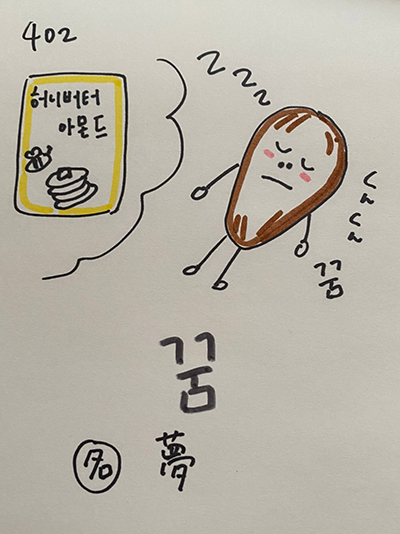 402
허니버터
아몬드
zzz
くんくん
꿈
꿈
名 夢